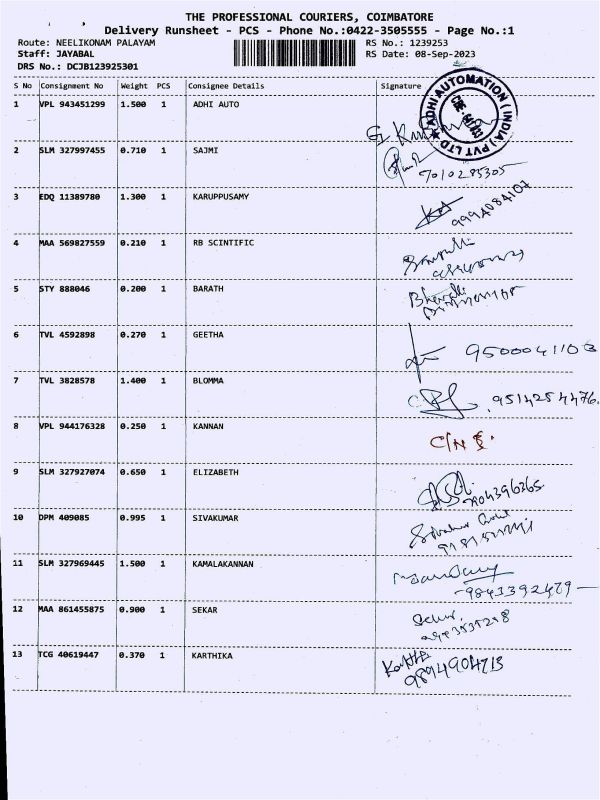 THE PROFESSIONAL COURIERS, COIMBATORE
Delivery Runsheet - PCS - Phone No.:0422-3505555 - Page No.:1
Route: NEELIKONAM PALAYAM RS No.: 1239253
Staff: JAYABAL RS Date: 08-Sep-2023
DRS No.: DCJB123925301
S No Consignment No Weight PCS Consignee Details Signature
1 VPL 943451299 1.500 1 ADHI AUTO
ADHI AUTOMATION (INDIA) PVT LTD
2 SLM 327997455 0.710 1 SAJMI
7010285305
3 EDQ 11389780 1.300 1 KARUPPUSAMY
9994084107
4 MAA 569827559 0.210 1 RB SCINTIFIC
5 STY 888046 0.200 1 BARATH
Bharath
6 TVL 4592898 0.270 1 GEETHA
9500041103
7 TVL 3828578 1.400 1 BLOMMA
9514254476
8 VPL 944176328 0.250 1 KANNAN
9 SLM 327927074 0.650 1 ELIZABETH
10 DPM 409085 0.995 1 SIVAKUMAR
11 SLM 327969445 1.500 1 KAMALAKANNAN
9843392479
12 MAA 861455875 0.900 1 SEKAR
13 TCG 40619447 0.370 1 KARTHIKA
9894904713